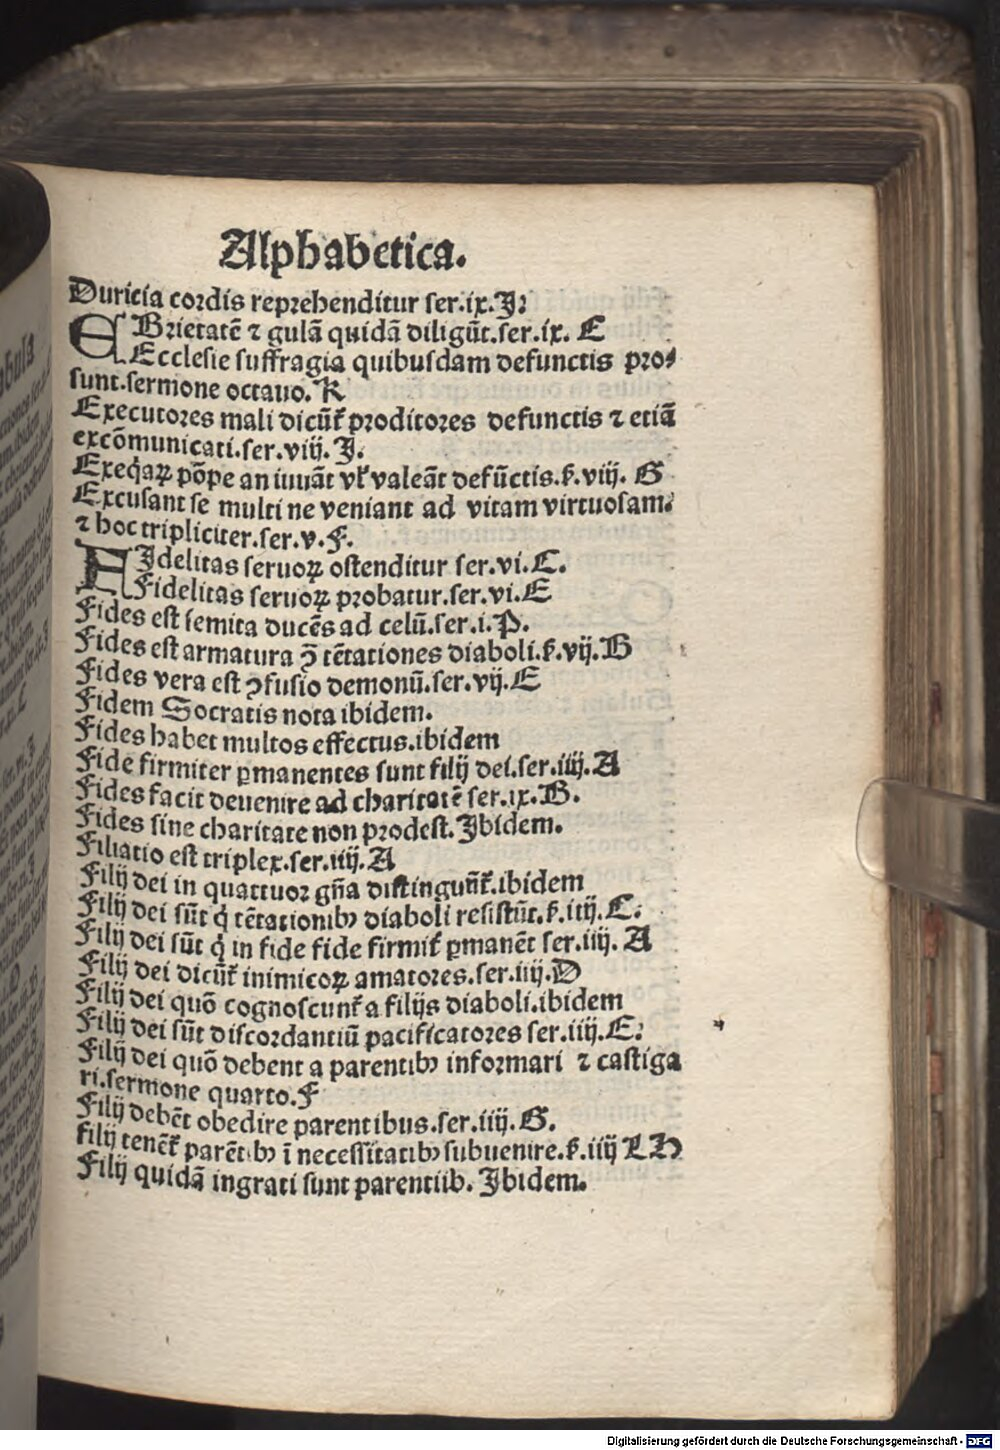 Alphabetica.
Duricia cordis reprehenditur ser.ix.J:
EBrietatē ⁊ gulā quidā diligūt.ser.ix. E
Ecclesie suffragia quibusdam defunctis pro⸗
sunt.sermione octauo. K
Executores mali dicūt᷑ proditores defunctis ⁊ etiā
excōmunicati.ser.viij. J.
Exeqaꝝ pōpe an iuuāt vl᷑ valeāt defūctis.ẜ.viij. G
Excusant se multi ne veniant ad vitam virtuosam:
⁊ hoc tripliciter.ser.v.F.
FJdelitas seruoꝝ ostenditur ser.vi.C.
Fidelitas seruoꝝ probatur.ser.vi.E
Fides est semita ducēs ad celū.ser.i.P.
Fides est armatura ꝯ̄ tētationes diaboli.ẜ.vij.B
Fides vera est ꝯfusio demonū.ser.vij.E
Fidem Socratis nota ibidem.
Fides habet multos effectus.ibidem
Fide firmiter ꝑmanentes sunt filij dei.ser.iiij.A
Fides facit deuenire ad charitatē ser.ix.B.
Fides sine charitate non prodest.Jbidem.
Filiatio est triplex.ser.iiij.A
Filij dei in quattuor gn̄a distingunt᷑.ibidem
Filij dei sūt q̇ tētationibꝰ diaboli resistūt.ẜ.iiij.C:
Filij dei sūt q̇ in fide fide firmit᷑ ꝑmanēt ser.iiij. A
Filij dei dicūt᷑ inimicoꝝ amatores.ser.iiij.D
Filij dei quō cognoscunt᷑ a filijs diaboli.ibidem
Filij dei sūt discordantiū pacificatores ser.iiij.E:
Filij dei quō debent a parentibꝰ informari ⁊ castiga
ri.sermone quarto.F
Filij debēt obedire parentibus.ser.iiij.G.
filij tenēt᷑ parētibꝰ ī necessitatibꝰ subuenire.ẜ.iiij LH
Filij quidā ingrati sunt parentiib. Jbidem.
Digitalisierung gefördert durch die Deutsche Forschungsgemeinschaft - DFG